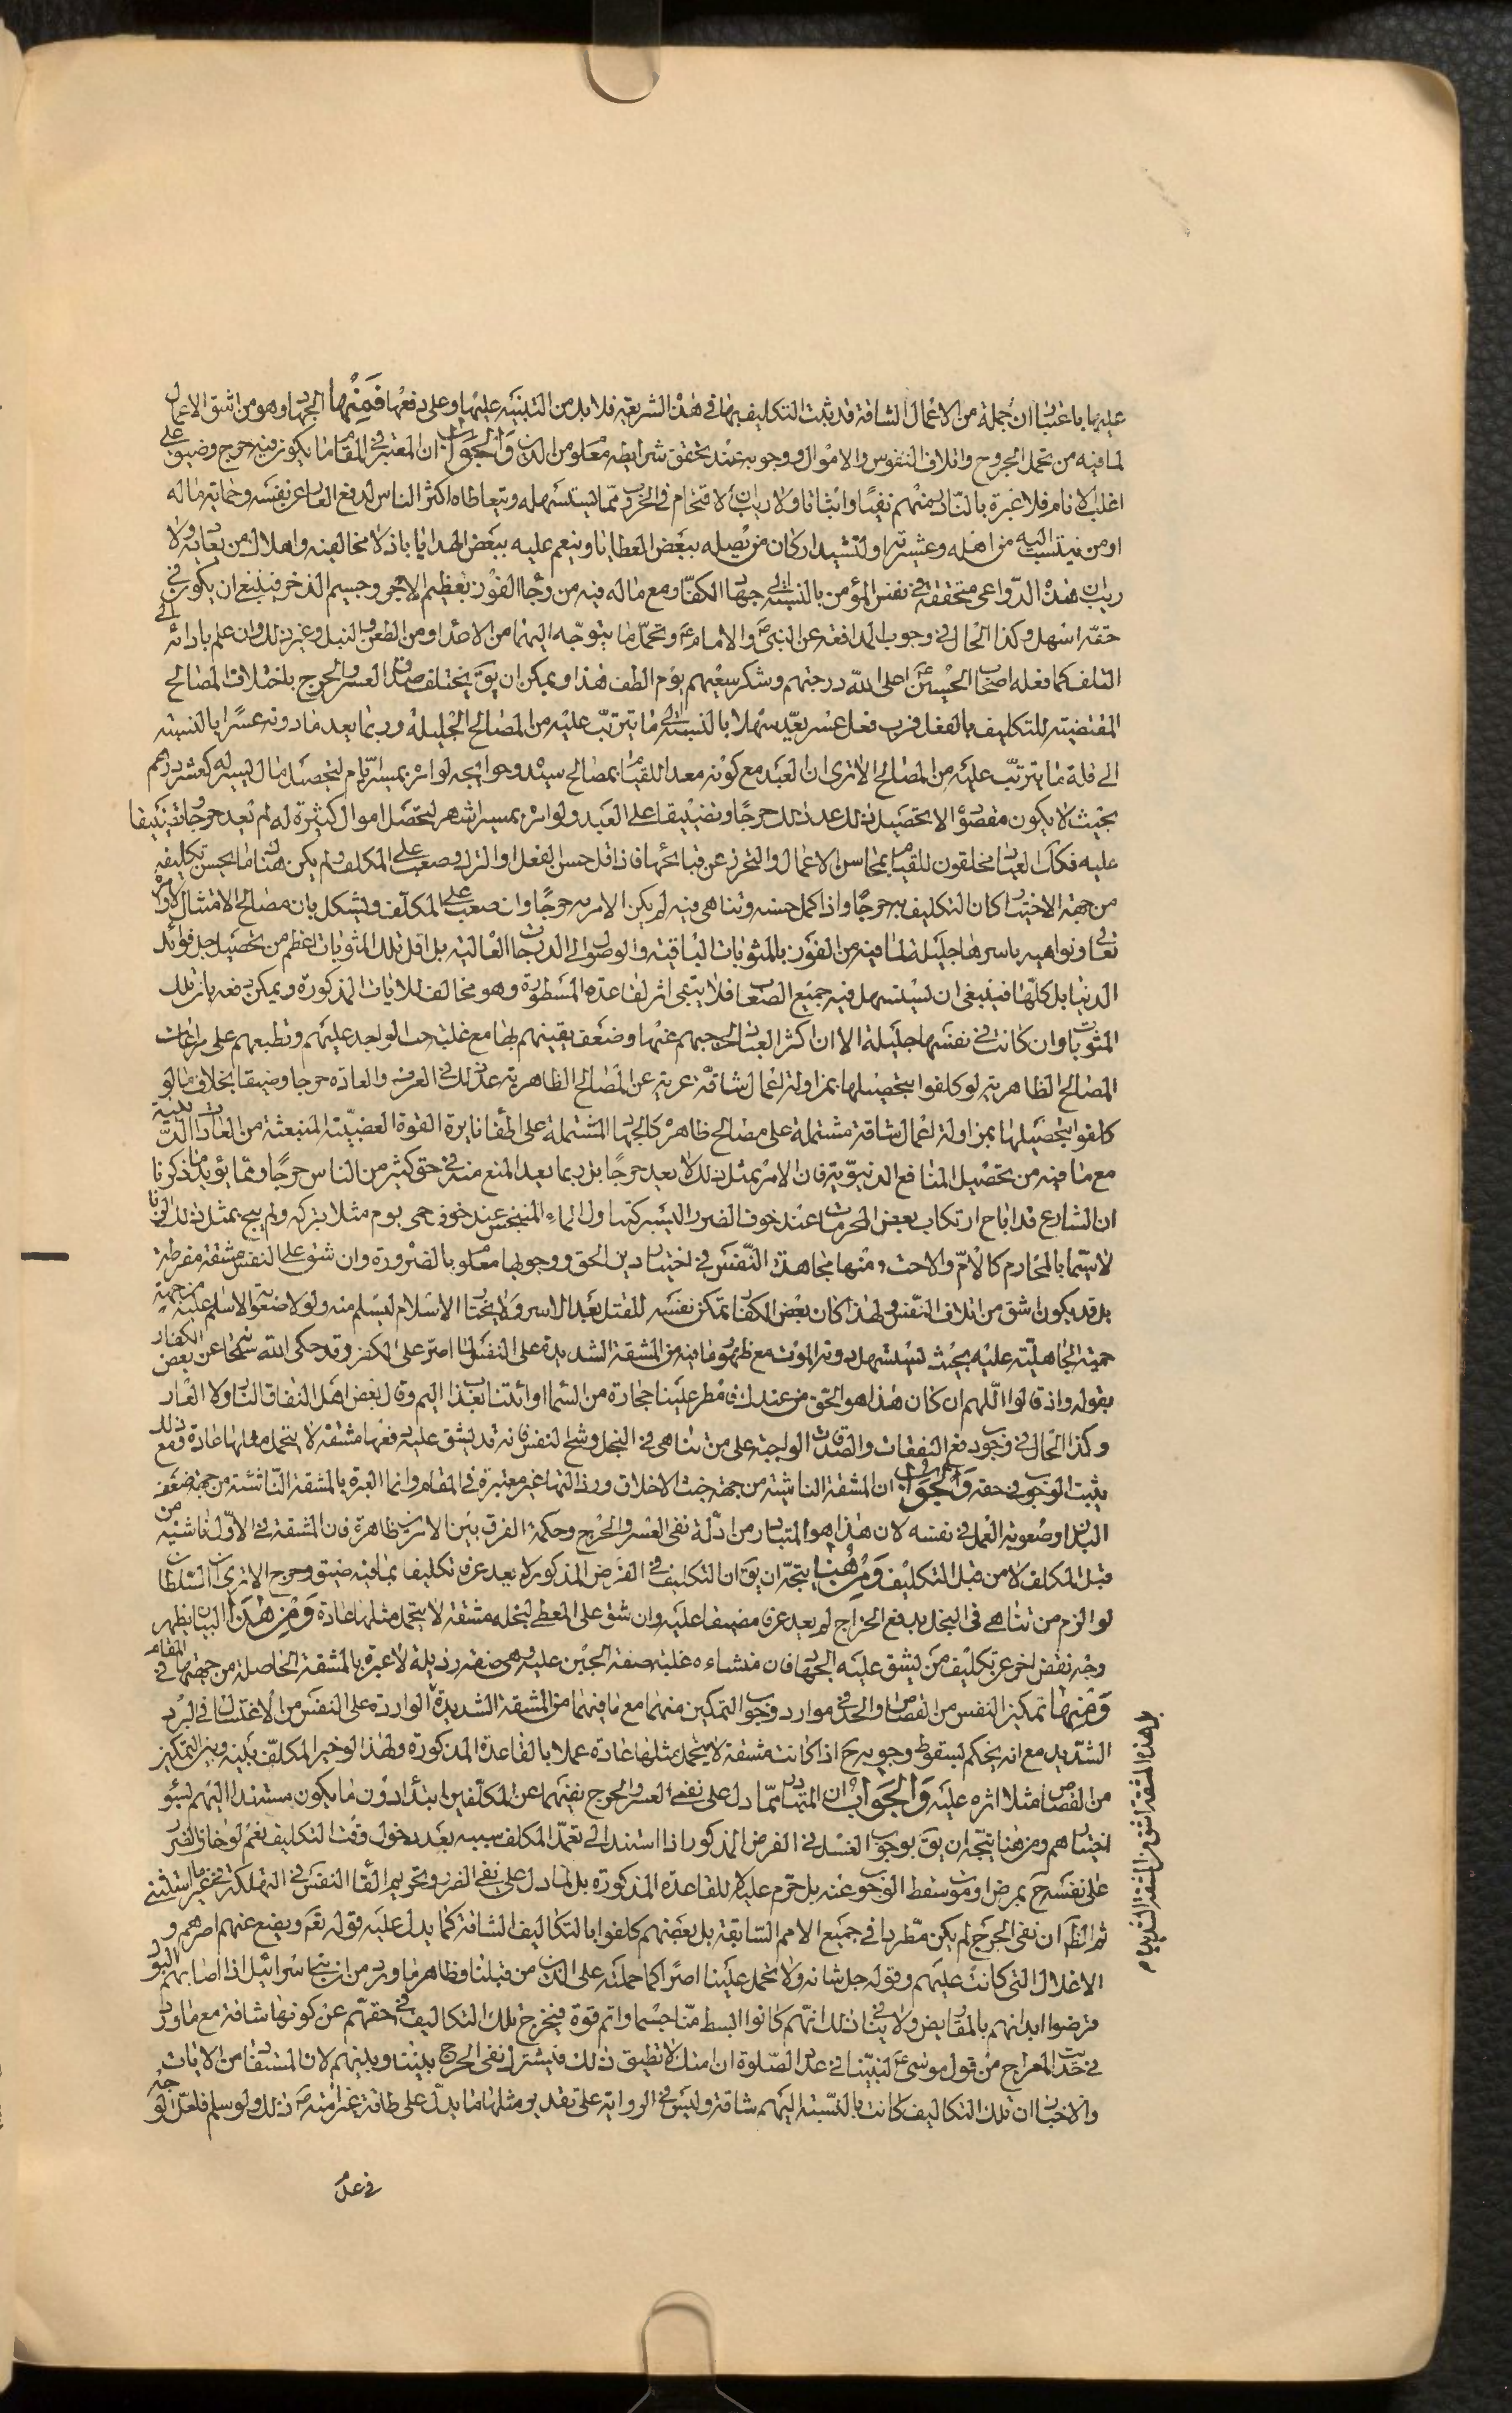 عليها باعتبار ان جملة من الاعمال الشاقة قد يثبت التكليف بها فى هذه الشريعة فلا بد من التنبيه عليها وعلى دفعها فمنها الجهاد وهو من اشق الاعمال
لما فيه من تحمل الجروح واتلاف النفوس والاموال ووجوبه عند تحقق شرايطه معلوم من الدين والجواب ان المعتبر فى المقام ما يكون فيه حرج وضيق على
اغلب الانام فلا عبرة بالنادر منهم نفيًا واثباتا ولا ريب ان الاقتحام فى الحرب مما يستسهله ويتعاطاه اكثر الناس لدفع العار عن نفسه وحماية ماله
او من ينتسب اليه من اهله وعشيرته او لتشييد اركان من يصله ببعض العطايا وينعم عليه ببعض الهدايا باذلال مخالفيه واهلاك من يعانده ولا
ريب ان هذه الدواعى متحققة فى نفس المؤمن بالنسبة الى جهاد الكفار مع ما له فيه من رجاء الفوز بعظيم الاجر وجسيم الذخر فينبغى ان يكون فى
حقه اسهل وكذا الحال فى وجوب المدافعة عن النبى ص والامام ع وتحمل ما يتوجه اليهما من الاعداء من الطعن والنبل وغير ذلك وان علم بادائه الى
التلف كما فعله اصحاب الحسين ع اعلى الله درجتهم وشكر سعيهم يوم الطف هذا ويمكن ان يق يختلف صدق العسر والحرج باختلاف المصالح
المقتضية للتكليف بالفعل فرب فعل عسر يعد سهلا بالنسبة الى ما يترتب عليه من المصالح الجليلة وربما يعد ما دونه عسرًا بالنسبة
الى قلة ما يترتب عليه من المصالح الا ترى ان العبد مع كونه معدا للقيام بمصالح سيده وحوايجه لو امر بمسير ايام لتحصيل مال يسير له كعشر درهم
بحيث لا يكون مقصوده الا تحصيل ذلك عد ذلك حرجًا وتضييقا على العبد ولو امر بمسير اشهر لتحصيل اموال كثيرة له لم يعد حرجا وتضييقا
عليه فكذا العباد مخلقون للقيام بمحاسن الاعمال والتحرز عن قبايحها فاذا قل حسن الفعل او الترك وصعب على المكلف ولم يكن هناك ما يحسن تكليفه
من جهة الاختبار كان التكليف به حرجًا واذا كمل حسنه وتناهى فيه لم يكن الامر به حرجًا وان صعب على المكلف ويشكل بان مصالح الامتثال لاوامره
تعالى ونواهيه باسرها جليلة لما فيه من الفوز بالمثوبات الباقية والوصول الى الدرجات العالية بل اقل تلك المثوبات اعظم من تحصيل جل فوائد
الدنيا بل كلها فينبغى ان يستسهل فيه جميع الصعاب فلا يبقى اثر لقاعدة المسطورة وهو مخالف للايات المذكورة ويمكن دفعه بان تلك
المثوبات وان كانت فى نفسها جليلة الا ان اكثر العباد لاحتجابهم عنها وضعف يقينهم بها مع غلبة حب العاجلة عليهم وتطبعهم على مراعات
المصالح الظاهرية لو كلفوا بتحصيلها بمزاولة اعمال شاقة عرية عن المصالح الظاهرية عد ذلك فى العرف والعادة حرجا وضيقا بخلاف ما لو
كلفوا بتحصيلها بمزاولة اعمال شاقة مشتملة على مصالح ظاهرة كالجهاد المشتملة على اطفاء نايرة القوة الغضبية المنبعثة من العادات الدينية
مع ما فيه من تحصيل المنافع الدنيوية فان الامر بمثل ذلك لا يعد حرجًا بل ربما يعد المنع منه فى حق كثير من الناس حرجًا ومما يؤيد ما ذكرنا
ان الشارع قد اباح ارتكاب بعض المحرمات عند خوف الضرر اليسير كتناول الماء المتنجس عند خوف حمى يوم مثلا بتركه ولم يبح بمثل ذلك الزنا
لا سيما بالمحارم كالام والاخت ومنها مجاهدة النفس فى اختيار دين الحق ووجوبها معلوم بالضرورة وان شق على النفس مشقة مفرطة
بل قد يكون اشق من اتلاف النفس ولهذا كان بعض الكفار تمكن نفسه للقتل بعد الاسر ولا يختار الاسلام ليسلم منه ولو لا صعوبة الاسلام عليه من جهة
حمية الجاهلية عليه بحيث يستسهل دونه الموت مع ظهور ما فيه من المشقة الشديدة على النفس لما اصر على الكفر وقد حكى الله سبحانه عن بعض الكفار
بقوله واذ قالوا اللهم ان كان هذا هو الحق من عندك فامطر علينا حجارة من السماء او ائتنا بعذاب اليم وقال بعض اهل النفاق النار ولا العار
وكذا الحال فى وجوب دفع النفقات والصدقات الواجبة على من تناهى فى البخل وشح النفس فانه قد يشق عليه دفعها مشقة لا يتحمل مثلها عادة ومع ذلك
يثبت الوجوب فى حقه والجواب ان المشقة الناشية من جهة خبث الاخلاق ورذالتها غير معتبرة فى المقام وانما العبرة بالمشقة الناشئة من جهة ضعف
البدن او صعوبة العمل فى نفسه لان هذا هو المتبادر من ادلة نفى العسر والحرج وحكمة الفرق بين الامرين ظاهرة فان المشقة فى الاول ناشئة من
قبل المكلف لا من قبل التكليف ومن هنا يتجه ان يق ان التكليف فى الفرض المذكور لا يعد عرفا تكليفا بما فيه ضيق وحرج الا ترى ان السلطان
لو الزم من تناهى فى البخل بدفع الخراج لم يعد عرفا مضيقا عليه وان شق على المعطى لبخله مشقة لا يتحمل مثلها عادة ومن هذا البيان يظهر
وجه نقض اخر عن تكليف من يشق عليه الجهاد فان منشاءه غلبة صفة الجبن عليه وهى صفة رذيلة لا عبرة بالمشقة الحاصلة من جهتها فى المقام
ومنها تمكين النفس من القصاص والحد فى موارد وجوب التمكين منهما مع ما فيهما من المشقة الشديدة الواردة على النفس من الاغتسال فى البرد
الشديد مع انه يحكم بسقوط وجوبه ح اذا كانت مشقة لا يتحمل مثلها عادة عملا بالقاعدة المذكورة ولهذا لو خير المكلف بينه وبين التمكين
من القصاص مثلا اثره عليه والجواب ان المتبادر مما دل على نفى العسر والحرج نفيهما عن المكلفين ابتداء دون ما يكون مستندا اليهم لسوء
اختيارهم ومن هنا يتجه ان يق بوجوب الغسل فى الفرض المذكور اذا استند الى تعمد المكلف سببه بعد دخول وقت التكليف نعم لو خاف الضرر
على نفسه ح بمرض او موت سقط الوجوب عنه بل حرم عليه لا للقاعدة المذكورة بل لما دل على نفى الضرر وتحريم القاء النفس فى التهلكة فى غير ما استثنى
ثم الظ ان نفى الحرج لم يكن مطردا فى جميع الامم السابقة بل بعضهم كلفوا بالتكاليف الشاقة كما يدل عليه قوله تع ويضع عنهم اصرهم و
الاغلال التى كانت عليهم وقوله جل شانه ولا تحمل علينا اصرًا كما حملته على الذين من قبلنا وظاهر ما ورد من ان بنى اسرائيل اذا اصابهم البول
قرضوا ابدانهم بالمقاريض ولا ينافى ذلك انهم كانوا ابسط منا جسما واتم قوة فيخرج تلك التكاليف فى حقهم عن كونها شاقة مع ما ورد
فى حديث المعراج من قول موسى ع لنبينا فى عدد الصلوة ان امتك لا تطيق ذلك فيشترك نفى الحرج بيننا وبينهم لان المستفاد من الايات
والاخبار ان تلك التكاليف كانت بالنسبة اليهم شاقة وليس فى الرواية على تقدير مثلها ما يدل على طاقة غير امته ص ذلك ولو سلم فلعل الوجه
فى عدم